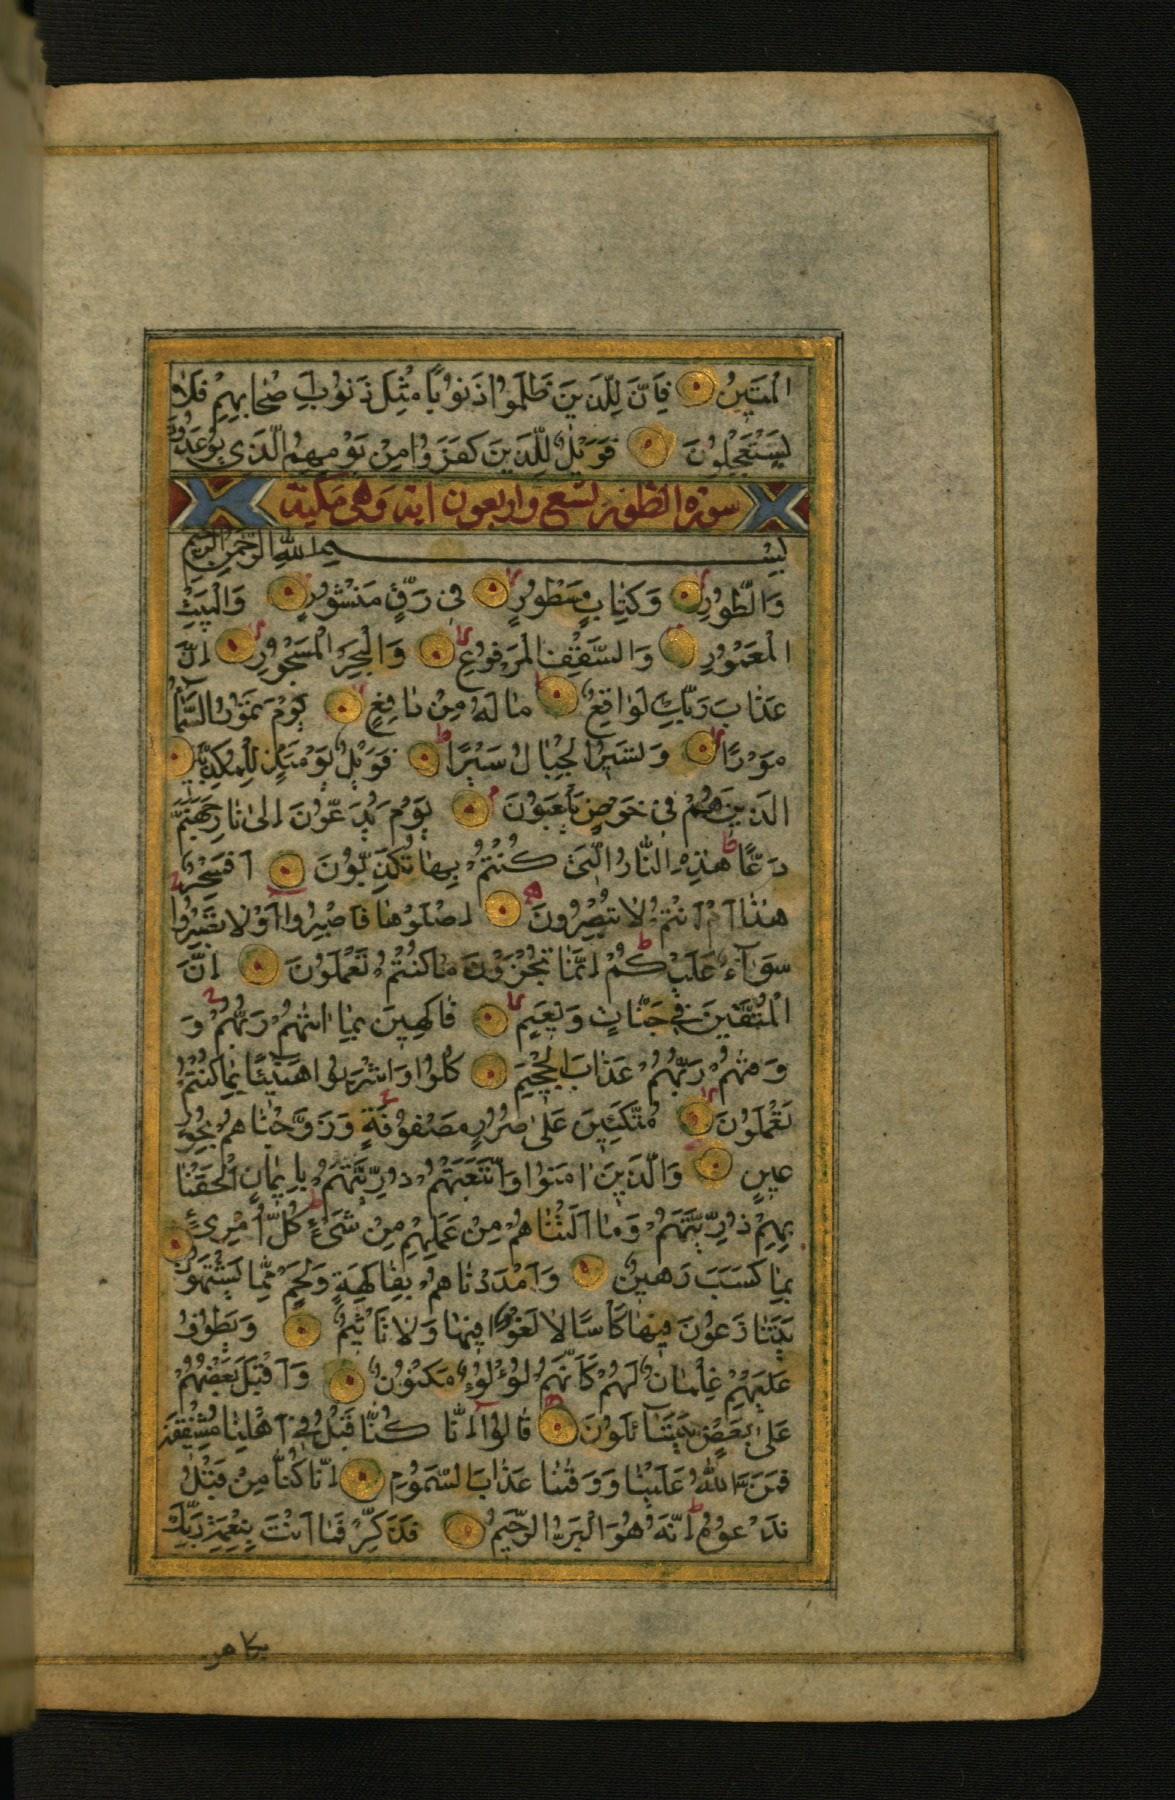 الْمَتِينُ فَاِنَّ لِلَّذِينَ ظَلَمُوا ذَنُوبًا مِثْلَ ذَنُوبِ اَصْحَابِهِمْ فَلَا
يَسْتَعْجِلُونَ فَوَيْلٌ لِلَّذِينَ كَفَرُوا مِنْ يَوْمِهِمُ الَّذِي يُوعَدُونَ
سورة الطور تسع واربعون اية وهى مكية
بِسْمِ اللّٰهِ الرَّحْمٰنِ الرَّحِيمِ
وَالطُّورِ وَكِتَابٍ مَسْطُورٍ فِي رَقٍّ مَنْشُورٍ وَالْبَيْتِ
الْمَعْمُورِ وَالسَّقْفِ الْمَرْفُوعِ وَالْبَحْرِ الْمَسْجُورِ اِنَّ
عَذَابَ رَبِّكَ لَوَاقِعٌ مَا لَهُ مِنْ دَافِعٍ يَوْمَ تَمُورُ السَّمَاءُ
مَوْرًا وَتَسِيرُ الْجِبَالُ سَيْرًا فَوَيْلٌ يَوْمَئِذٍ لِلْمُكَذِّبِينَ
الَّذِينَ هُمْ فِي خَوْضٍ يَلْعَبُونَ يَوْمَ يُدَعُّونَ اِلٰى نَارِ جَهَنَّمَ
دَعًّا هٰذِهِ النَّارُ الَّتِي كُنْتُمْ بِهَا تُكَذِّبُونَ اَفَسِحْرٌ
هٰذَا اَمْ اَنْتُمْ لَا تُبْصِرُونَ اِصْلَوْهَا فَاصْبِرُوا اَوْ لَا تَصْبِرُوا
سَوَاءٌ عَلَيْكُمْ اِنَّمَا تُجْزَوْنَ مَا كُنْتُمْ تَعْمَلُونَ اِنَّ
الْمُتَّقِينَ فِي جَنَّاتٍ وَنَعِيمٍ فَاكِهِينَ بِمَا اٰتٰهُمْ رَبُّهُمْ وَ
وَقٰهُمْ رَبُّهُمْ عَذَابَ الْجَحِيمِ كُلُوا وَاشْرَبُوا هَنِيئًا بِمَا كُنْتُمْ
تَعْمَلُونَ مُتَّكِئِينَ عَلٰى صُرُرٍ مَصْفُوفَةٍ وَزَوَّجْنَاهُمْ بِحُورٍ
عِينٍ وَالَّذِينَ اٰمَنُوا وَاتَّبَعَتْهُمْ ذُرِّيَّتُهُمْ بِاِيمَانٍ اَلْحَقْنَا
بِهِمْ ذُرِّيَّتَهُمْ وَمَا اَلَتْنَاهُمْ مِنْ عَمَلِهِمْ مِنْ شَيْءٍ كُلُّ امْرِئٍ
بِمَا كَسَبَ رَهِينٌ وَاَمْدَدْنَاهُمْ بِفَاكِهَةٍ وَلَحْمٍ مِمَّا يَشْتَهُونَ
يَتَنَازَعُونَ فِيهَا كَأْسًا لَا لَغْوٌ فِيهَا وَلَا تَأْثِيمٌ وَيَطُوفُ
عَلَيْهِمْ غِلْمَانٌ لَهُمْ كَاَنَّهُمْ لُؤْلُؤٌ مَكْنُونٌ وَاَقْبَلَ بَعْضُهُمْ
عَلٰى بَعْضٍ يَتَسَاءَلُونَ قَالُوا اِنَّا كُنَّا قَبْلُ فِي اَهْلِنَا مُشْفِقِينَ
فَمَنَّ اللّٰهُ عَلَيْنَا وَوَقٰنَا عَذَابَ السَّمُومِ اِنَّا كُنَّا مِنْ قَبْلُ
نَدْعُوهُ اِنَّهُ هُوَ الْبَرُّ الرَّحِيمُ فَذَكِّرْ فَمَا اَنْتَ بِنِعْمَتِ رَبِّكَ
بكاهن